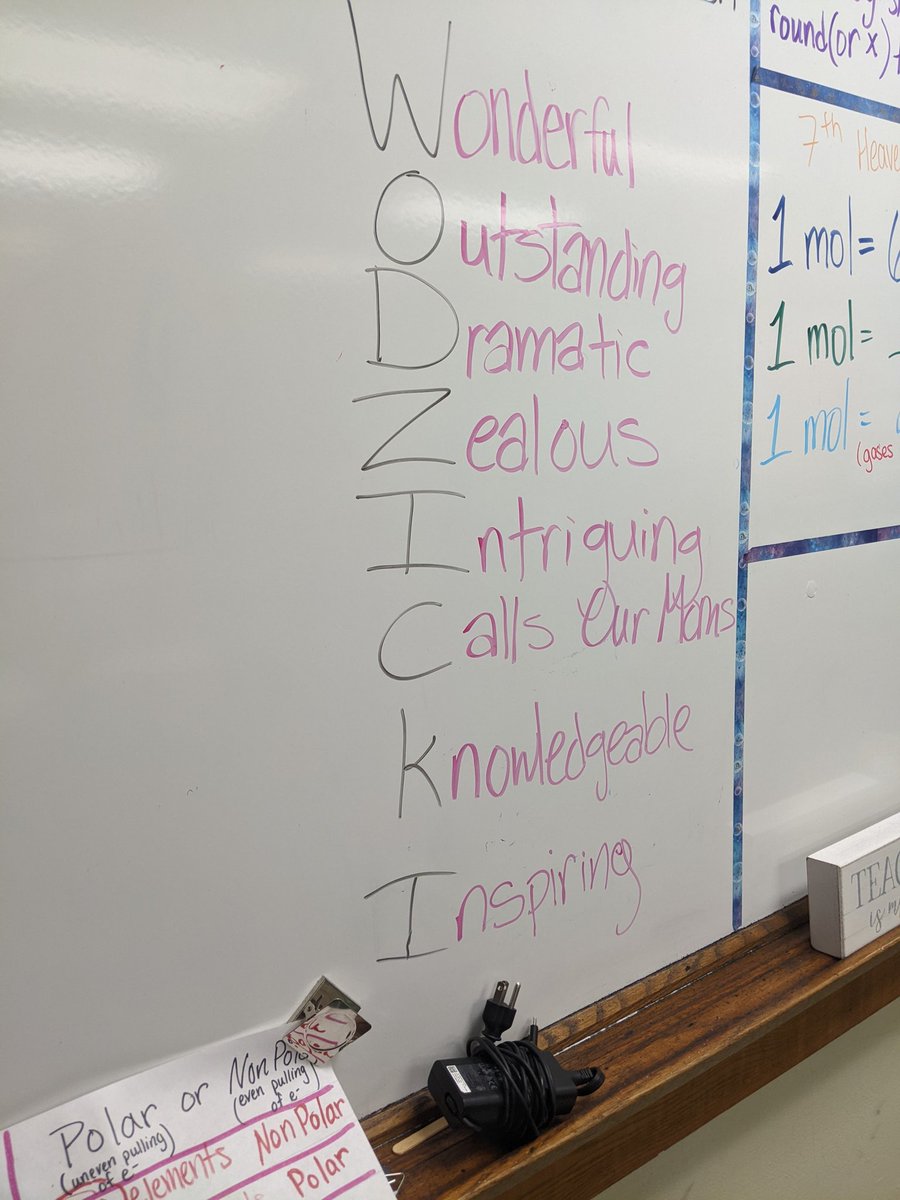 Wonderful
Outstanding
Dramatic
Zealous
Intriguing
Calls Our Moms
Knowledgeable
Inspiring
round(or x)
7th
1 mol =
1 mol =
1 mol =
(gases
is
Polar or Non
(uneven pulling of e-
(even pulling of e-
elements Non Polar
Polar